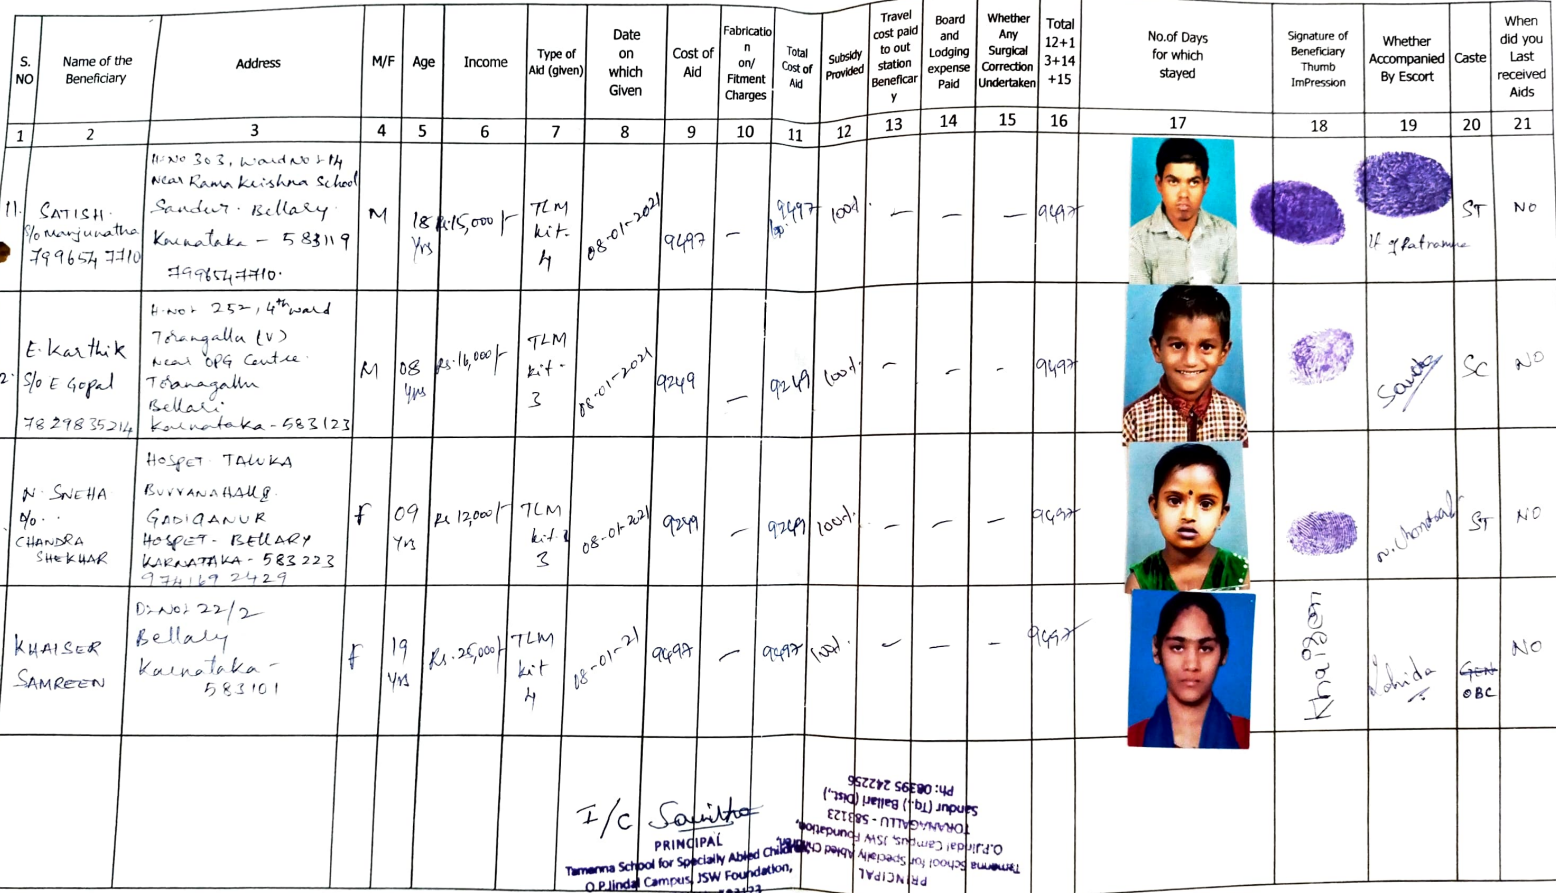 S. NO
Name of the Beneficiary
Address
M/F
Age
Income
Type of Aid (given)
Date on which Given
Cost of Aid
Fabricatio n on/ Fitment Charges
Total Cost of Aid
Subsidy Provided
Travel cost paid to out station Beneficar y
Board and Lodging expense Paid
Whether Any Surgical Correction Undertaken
Total 12+1 3+14 +15
No.of Days for which stayed
Signature of Beneficiary Thumb ImPression
Whether Accompanied By Escort
Caste
When did you Last received Aids
1 2 3 4 5 6 7 8 9 10 11 12 13 14 15 16 17 18 19 20 21
11.
SATISH.
S/o Manjunatha
7996547710
H.No 303, Ward No: 14
Near Rama Krishna School
Sandur. Bellary.
Karnataka - 583119
7996547710.
M
18 Yrs
Rs.15,000/-
TLM kit- 4
08-01-2021
9497
-
9497
100%
-
-
-
9497
ST
NO
2.
E. Karthik
S/o E Gopal
7829835214
H.No: 252, 4th ward
Torangallu (V)
Near OPG Centre.
Toranagallu
Bellari
Karnataka - 583123
M
08 Yrs
Rs.16,000/-
TLM kit- 3
08-01-2021
9249
-
9249
100%
-
-
-
9497
SC
NO
N. SNEHA
D/o..
CHANDRA
SHEKHAR
HOSPET TALUKA
GADIGANUR
HOSPET - BELLARY
KARNATAKA - 583223
9741692429
F
09 Yrs
Rs 12,000/-
TLM kit- 3
08-01-2021
9249
-
9249
100%
-
-
-
9497
ST
NO
KHAISER
SAMREEN
D:No: 22/2
Bellary
Karnataka -
583101
F
19 Yrs
Rs.25,000/-
TLM kit 4
08-01-21
9497
-
9497
100%.
-
-
-
9497
GEN
OBC
NO
I/C Savitha
PRINCIPAL
Tamanna School for Specially Abled Children,
O.P.Jindal Campus, JSW Foundation,
PRINCIPAL
Tamanna School for Specially Abled Children,
O.P.Jindal Campus, JSW Foundation,
TORANAGALLU - 583123
Sandur (Tq.) Ballari (Dist.,)
Ph: 08395 242256